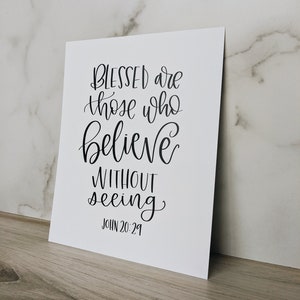 BLESSED are
those who
believe
WITHOUT
seeing
JOHN 20:29